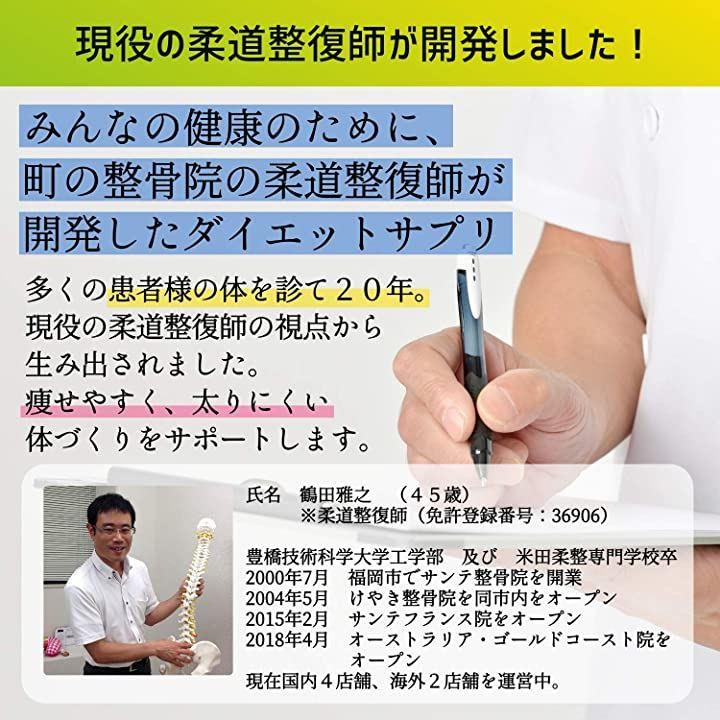 現役の柔道整復師が開発しました！
みんなの健康のために、
町の整骨院の柔道整復師が
開発したダイエットサプリ
多くの患者様の体を診て２０年。
現役の柔道整復師の視点から
生み出されました。
痩せやすく、太りにくい
体づくりをサポートします。
氏名　鶴田雅之　（４５歳）
※柔道整復師（免許登録番号：36906）
豊橋技術科学大学工学部　及び　米田柔整専門学校卒
2000年7月　福岡市でサンテ整骨院を開業
2004年5月　けやき整骨院を同市内をオープン
2015年2月　サンテフランス院をオープン
2018年4月　オーストラリア・ゴールドコースト院を
オープン
現在国内４店舗、海外２店舗を運営中。